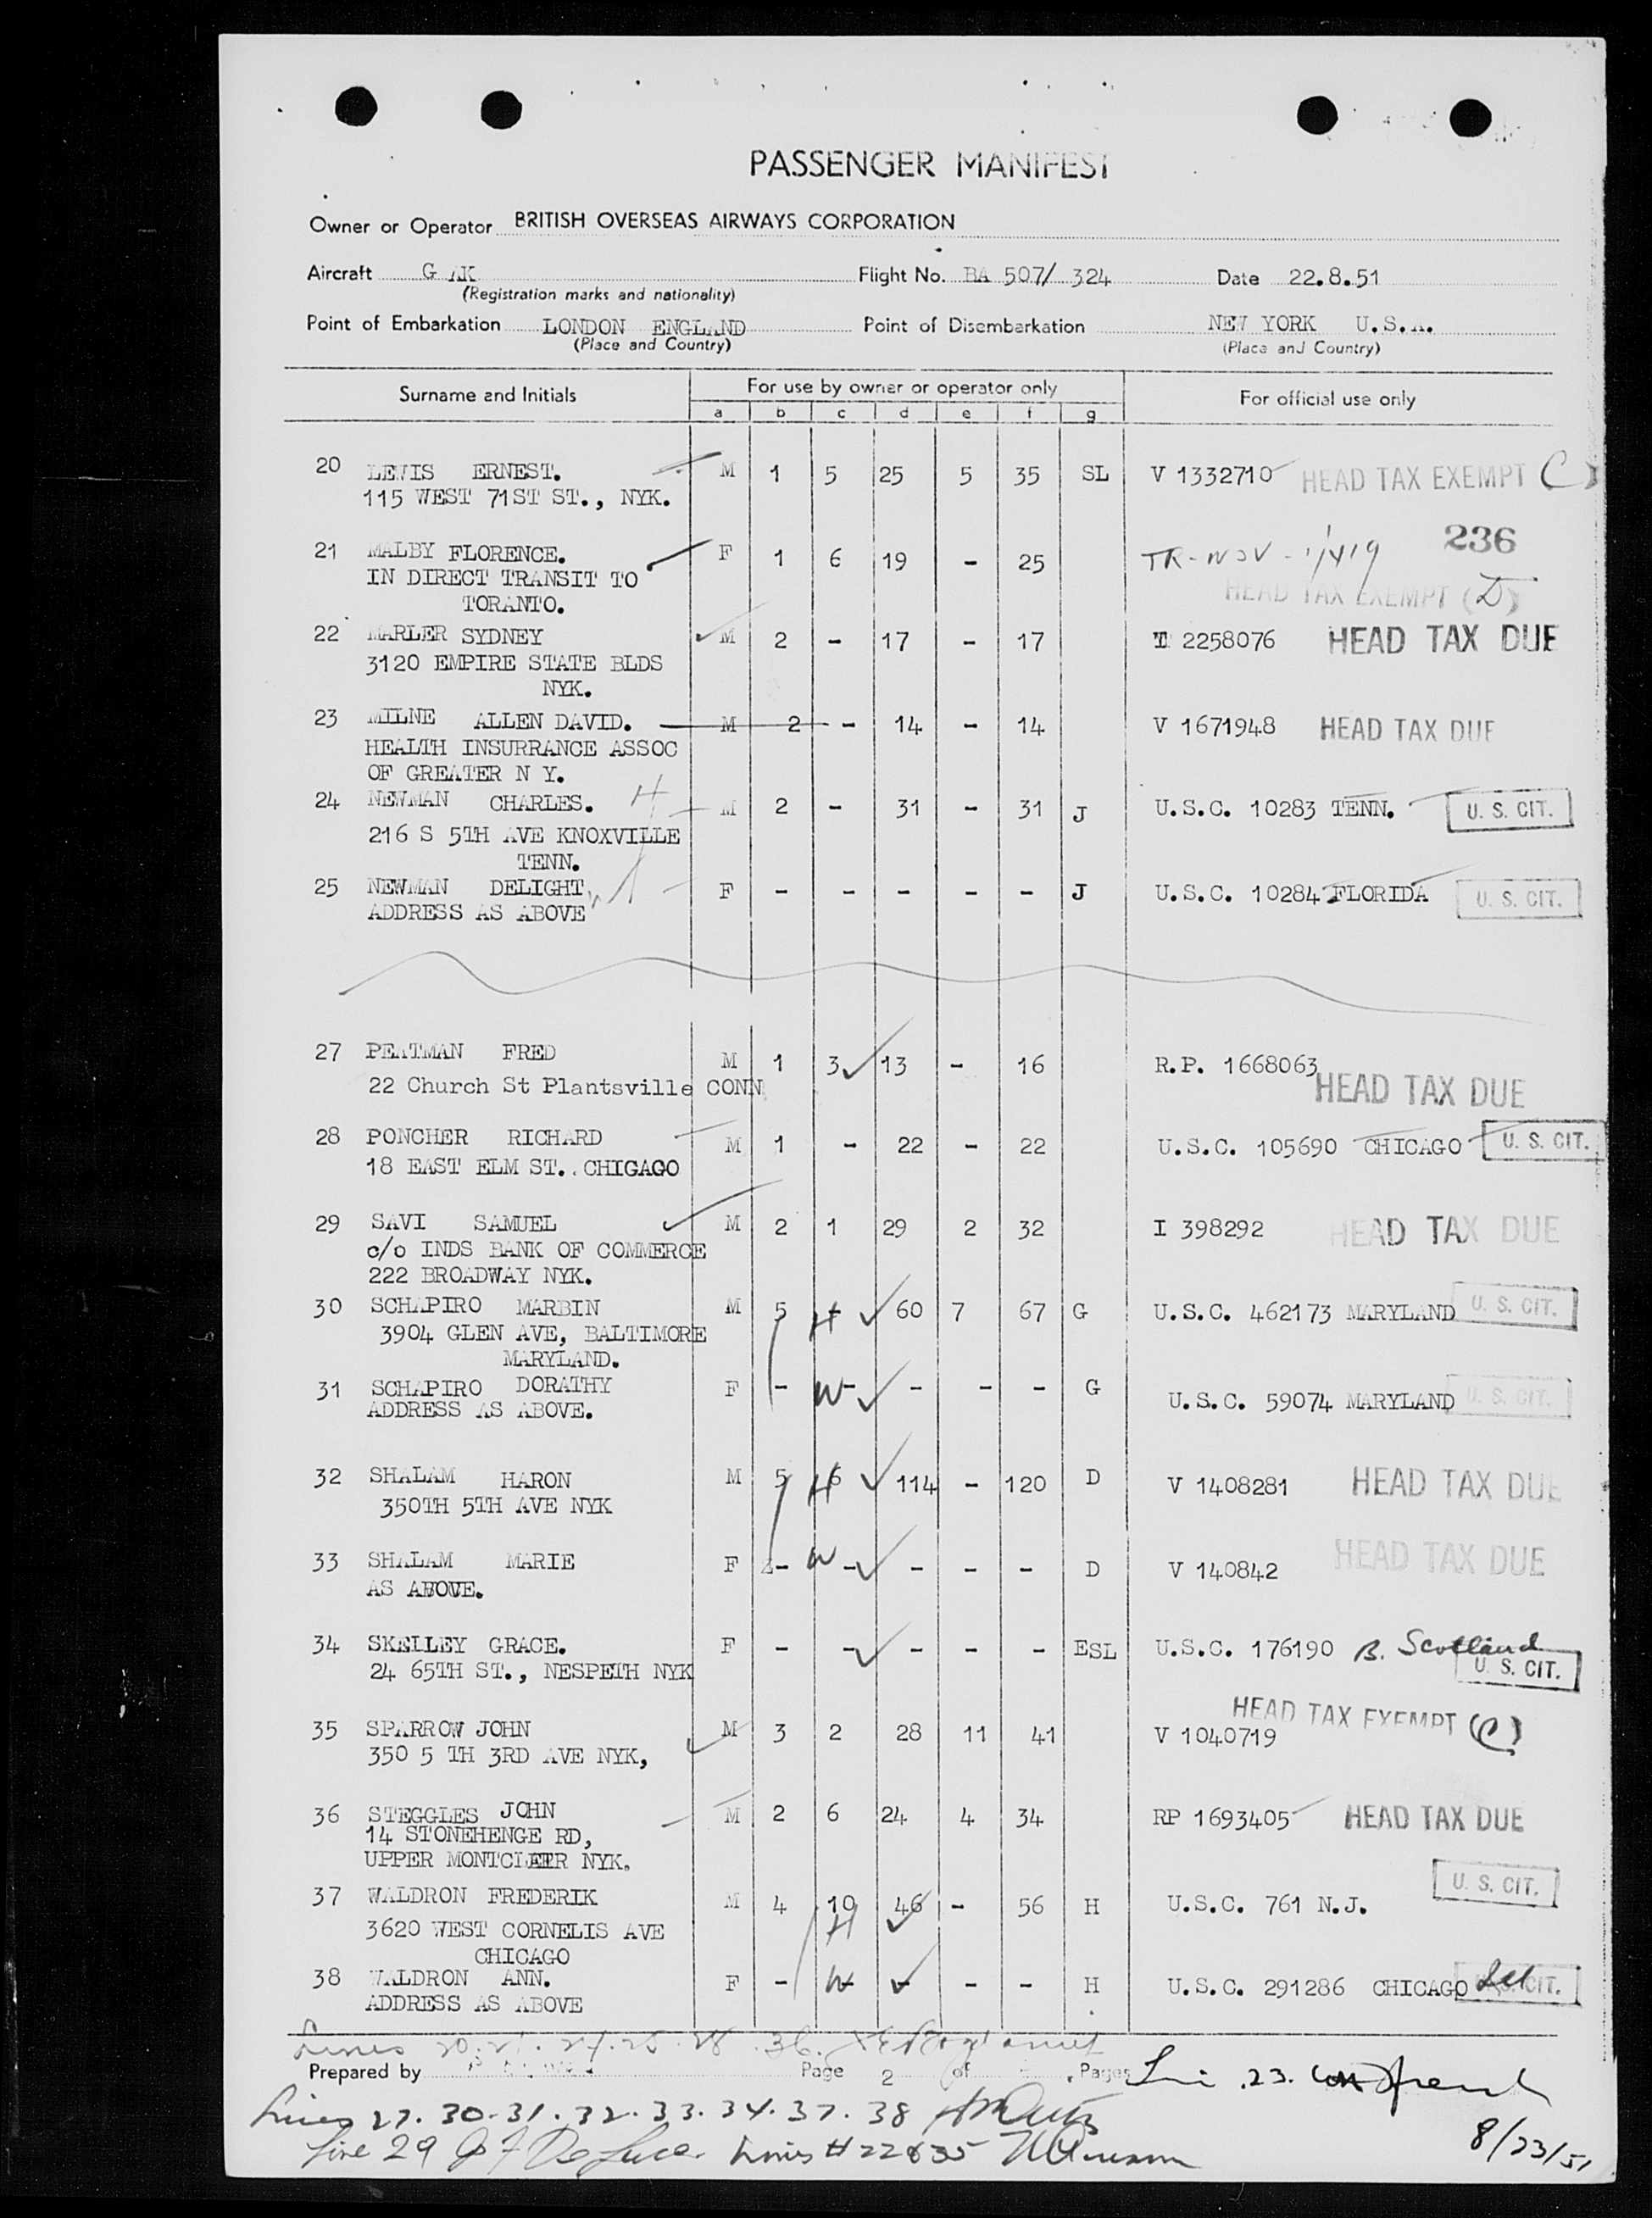 PASSENGER MANIFEST
Owner or Operator BRITISH OVERSEAS AIRWAYS CORPORATION
Aircraft G AK Flight No. BA 507/ 324 Date 22.8.51
(Registration marks and nationality)
Point of Embarkation LONDON ENGLAND Point of Disembarkation NEW YORK U.S.A.
(Place and Country) (Place and Country)
Surname and Initials For use by owner or operator only For official use only
a b c d e f g
20 LEWIS ERNEST. M 1 5 25 5 35 SL V 1332710 HEAD TAX EXEMPT (C)
115 WEST 71ST ST., NYK.
236
21 MALBY FLORENCE. F 1 6 19 - 25 TR-NOV-
IN DIRECT TRANSIT TO HEAD TAX EXEMPT (D)
TORANTO.
22 MARLER SYDNEY M 2 - 17 - 17 I 2258076 HEAD TAX DUE
3120 EMPIRE STATE BLDS
NYK.
23 MILNE ALLEN DAVID. M 2 - 14 - 14 V 1671948 HEAD TAX DUE
HEALTH INSURRANCE ASSOC
OF GREATER N Y.
24 NEWMAN CHARLES. H M 2 - 31 - 31 J U.S.C. 10283 TENN. U. S. CIT.
216 S 5TH AVE KNOXVILLE
TENN.
25 NEWMAN DELIGHT W F - - - - - J U.S.C. 10284 FLORIDA U. S. CIT.
ADDRESS AS ABOVE
27 PEATMAN FRED M 1 3 13 - 16 R.P. 1668063
22 Church St Plantsville CONN HEAD TAX DUE
28 PONCHER RICHARD M 1 - 22 - 22 U.S.C. 105690 CHICAGO U. S. CIT.
18 EAST ELM ST.. CHIGAGO
29 SAVI SAMUEL M 2 1 29 2 32 I 398292 HEAD TAX DUE
c/o INDS BANK OF COMMERCE
222 BROADWAY NYK.
30 SCHAPIRO MARBIN M 5 H 60 7 67 G U.S.C. 462173 MARYLAND U. S. CIT.
3904 GLEN AVE, BALTIMORE
MARYLAND.
31 SCHAPIRO DORATHY F - W - - - - G U.S.C. 59074 MARYLAND U. S. CIT.
ADDRESS AS ABOVE.
32 SHALAM HARON M 5 H 6 114 - 120 D V 1408281 HEAD TAX DUE
350TH 5TH AVE NYK
33 SHALAM MARIE F - W - - - - D V 140842 HEAD TAX DUE
AS ABOVE.
34 SKELLEY GRACE. F - - - - - ESL U.S.C. 176190 B. Scotland
24 65TH ST., NESPETH NYK U. S. CIT.
35 SPARROW JOHN M 3 2 28 11 41 V 1040719 HEAD TAX EXEMPT (C)
350 5 TH 3RD AVE NYK,
36 STEGGLES JOHN M 2 6 24 4 34 RP 1693405 HEAD TAX DUE
14 STONEHENGE RD,
UPPER MONTCLAIR NYK.
37 WALDRON FREDERIK M 4 10 46 - 56 H U.S.C. 761 N.J. U. S. CIT.
3620 WEST CORNELIS AVE H
CHICAGO
38 WALDRON ANN. F - W - - - H U.S.C. 291286 CHICAGO U. S. CIT.
ADDRESS AS ABOVE
Lines 20. 21. 24. 25. 28. 36.
Prepared by Page 2 of Pages
23.
Lines 27. 30. 31. 32. 33. 34. 37. 38
Line 29 Lines # 22 & 35
8/23/51